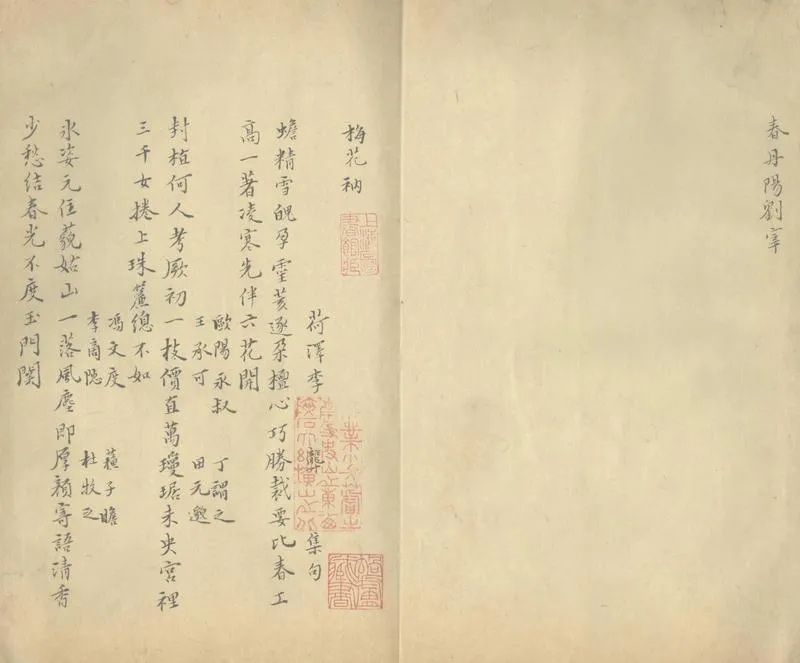 春丹陽劉宰
梅花衲
上海圖書館藏
荷澤李龏集句
蟾精雪魄孕靈荄逐朶檀心巧勝裁要比春工
高一著凌寒先伴六花開
歐陽永叔 丁謂之
王承可 田元邈
封植何人考厥初一枝價直萬瓊琚未央宮裡
三千女捲上珠簾總不如
馮文度 蘇子瞻
李商隱 杜牧之
氷姿元住藐姑山一落風塵即厚顏寄語清香
少愁結春光不度玉門関